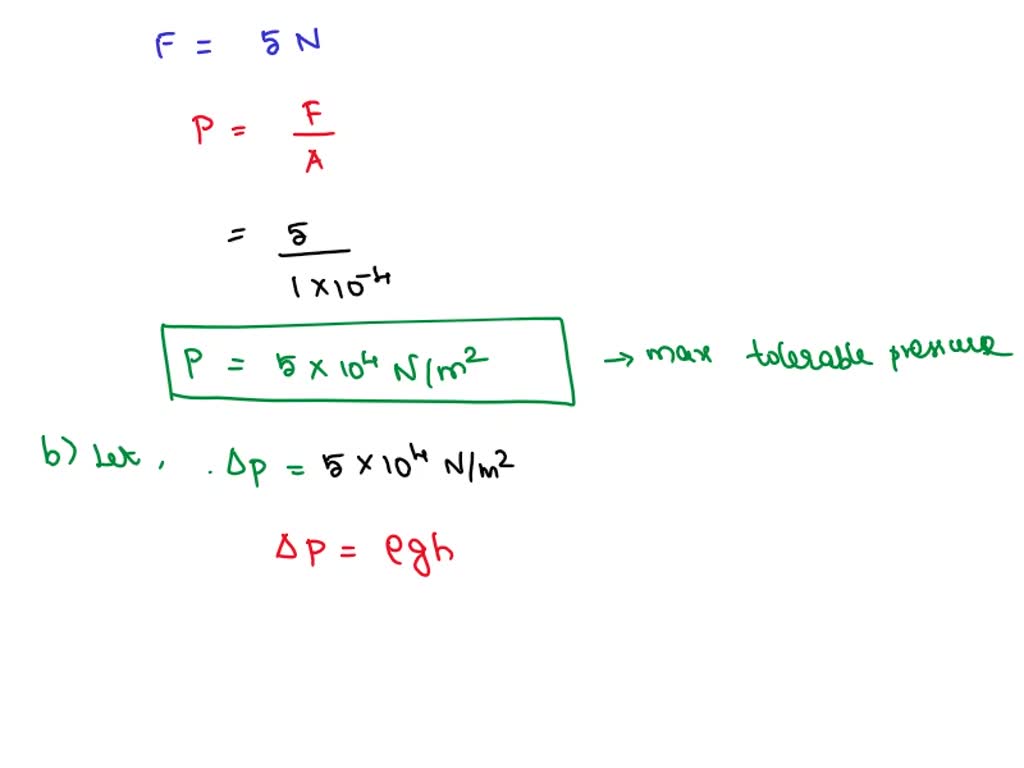 F = 5 N
P = F/A
= 5/1×10⁻⁴
P = 5 × 10⁴ N/m² → max tolerable pressure
b) Let, . Δp = 5 × 10⁴ N/m²
ΔP = ρgh